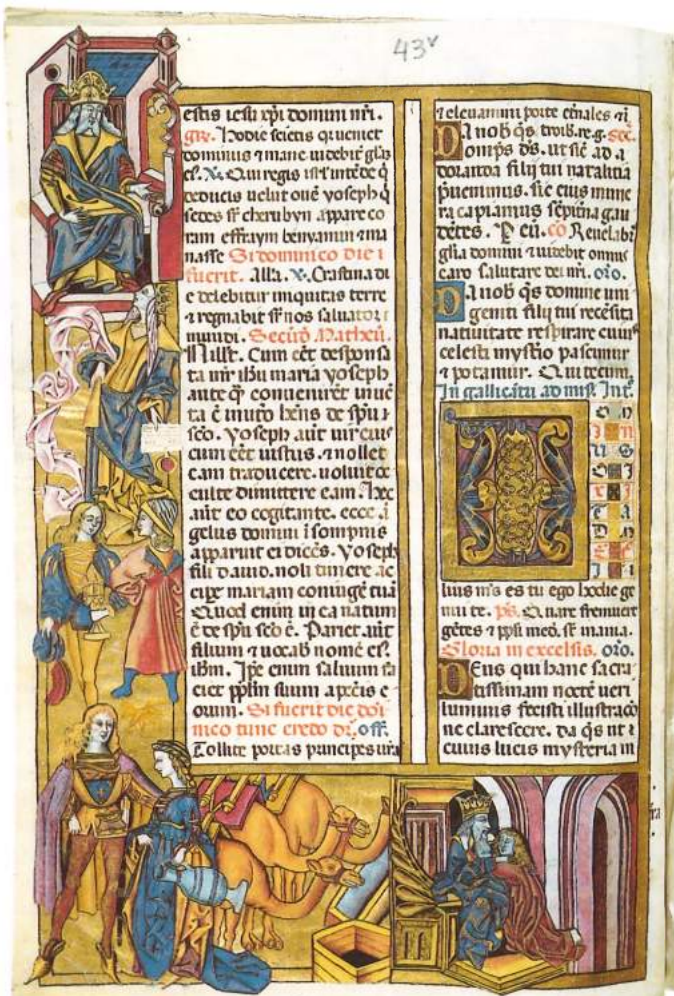 43v
estis iesu xp̄i domini nr̄i.
gr̄e. Hodie scietis q̄ ueniet
dominus ⁊ mane uidebit̄ glā
eī. ℣. Qui regis isrl̄ intēde q̄
deducis uelut ouē yoseph q̄
sedes sr̄ cherubyn appare co
ram effraym benyamin ⁊ ma
nasse Si dominico die
fuerit. Alla. ℣. Crastina di
e delebitur iniquitas terre
⁊ regnabit sr̄ nos saluator
mundi. Secūd̄ Matheū.
Cum eēt desponsa
ta mr̄ ih̄u maria yoseph
ante q̄ conuenirēt inuē
ta ē in utō hēns de sp̄u
sc̄o. Yoseph aūt uir eius
cum eēt iustus ⁊ nollet
eam traducere. uoluit oc
culte dimittere eam. Hec
aūt eo cogitante. ecce ī
gelus domini ī sompnis
apparuit ei dicēs. Yoseph
fili dauid. noli timere ac
cipe mariam coniugē tuā
Quod enim in ea natum
ē de sp̄u sc̄o ē. Pariet aūt
filium ⁊ uocab̄ nomē eī.
ih̄m. Ip̄e enim saluum fa
ciet pp̄lm suum a pctīs e
orum. Si fuerit die doī
nico tunc credo dr̄. off.
Tollite portas principes ur̄a
⁊ eleuamini porte etn̄ales
Da nob̄ q̄s sec̄.
omp̄s ds̄. ut sic̄ ad a
doranda filij tui natalitia
p̄uenimus. sic eius mune
ra capiamus sēpitn̄a gau
dētes. P eū. cō Reuelab̄
glīa domini ⁊ uidebit omnis
caro salutare dei nr̄i. oīo.
Da nob̄ q̄s domine uni
geniti filij tui recēsita
natiuitate respirare cuius
celesti mystīo pascimur
⁊ potamur. Qui tecum.
In gallicātu ad mis̄. Int̄.
D
O N
I N
U S
D I
X I
T A
D N
E F
I
lius m̄s es tu ego hodie ge
nui te. p̄s. Quare fremuer̄t
gētes ⁊ pp̄li med̄. sr̄ inania.
Gloria in excelsis. oīo.
Deus qui hanc sacra
tissimam noctē ueri
luminis fecisti illustracō
ne clarescere. da q̄s ut
cuius lucis mysteria in